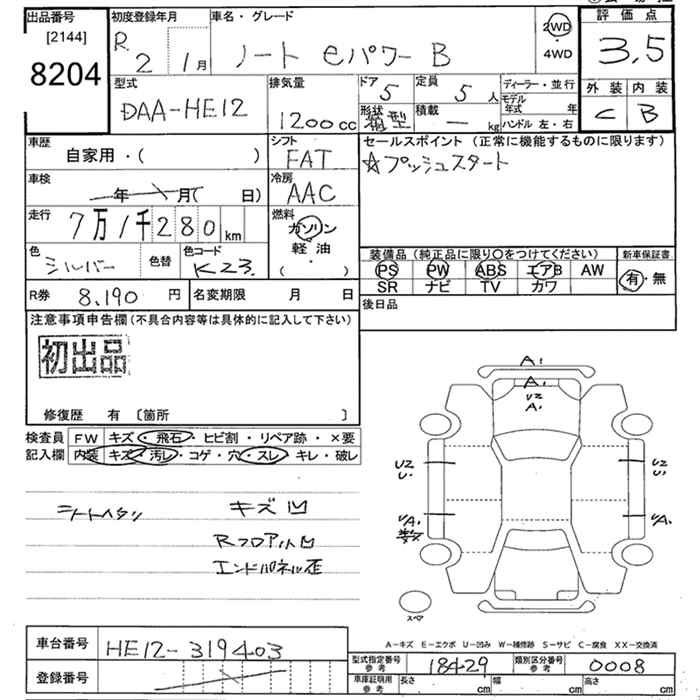 出品番号
[2144]
8204
初度登録年月
R 2 1月
車名・グレード
ノート eパワー B
2WD
・
4WD
評価点
3.5
外装 内装
C B
型式
DAA-HE12
排気量
1200cc
ドア 5
定員 5 人
形状 箱型
積載 — kg
ディーラー・並行
モデル年式 年
ハンドル 左・右
車歴
自家用・( )
シフト
FAT
セールスポイント (正常に機能するものに限ります)
☆プッシュスタート
車検
年 月( 日)
冷房
AAC
走行
7万1千280km
燃料
ガソリン
軽・油
( )
色
シルバー
色替
色コード
K23
装備品 (純正品に限り○をつけてください)
PS PW ABS エアB AW
SR ナビ TV カワ
新車保証書
有・無
R券 8,190 円
名変期限 月 日
後日品
注意事項申告欄(不具合内容等は具体的に記入して下さい)
初出品
修復歴 有 〔箇所 〕
検査員記入欄
FW キズ・飛石・ヒビ割・リペア跡・×要
内装 キズ・汚レ・コゲ・穴・スレ・キレ・破レ
シートヘタリ
キズ凹
Rフロア凹
エンドパネル歪
A1
A1
U2
A1
U2
U1
U2
U1
UA1
UA1
スペア
A-キズ E-エクボ U-凹み W-補修跡 S-サビ C-腐食 XX-交換済
車台番号
HE12-319403
登録番号
型式指定番号 参考
18429
類別区分番号 参考
0008
車庫証明用 参考
長さ cm 幅 cm 高さ cm